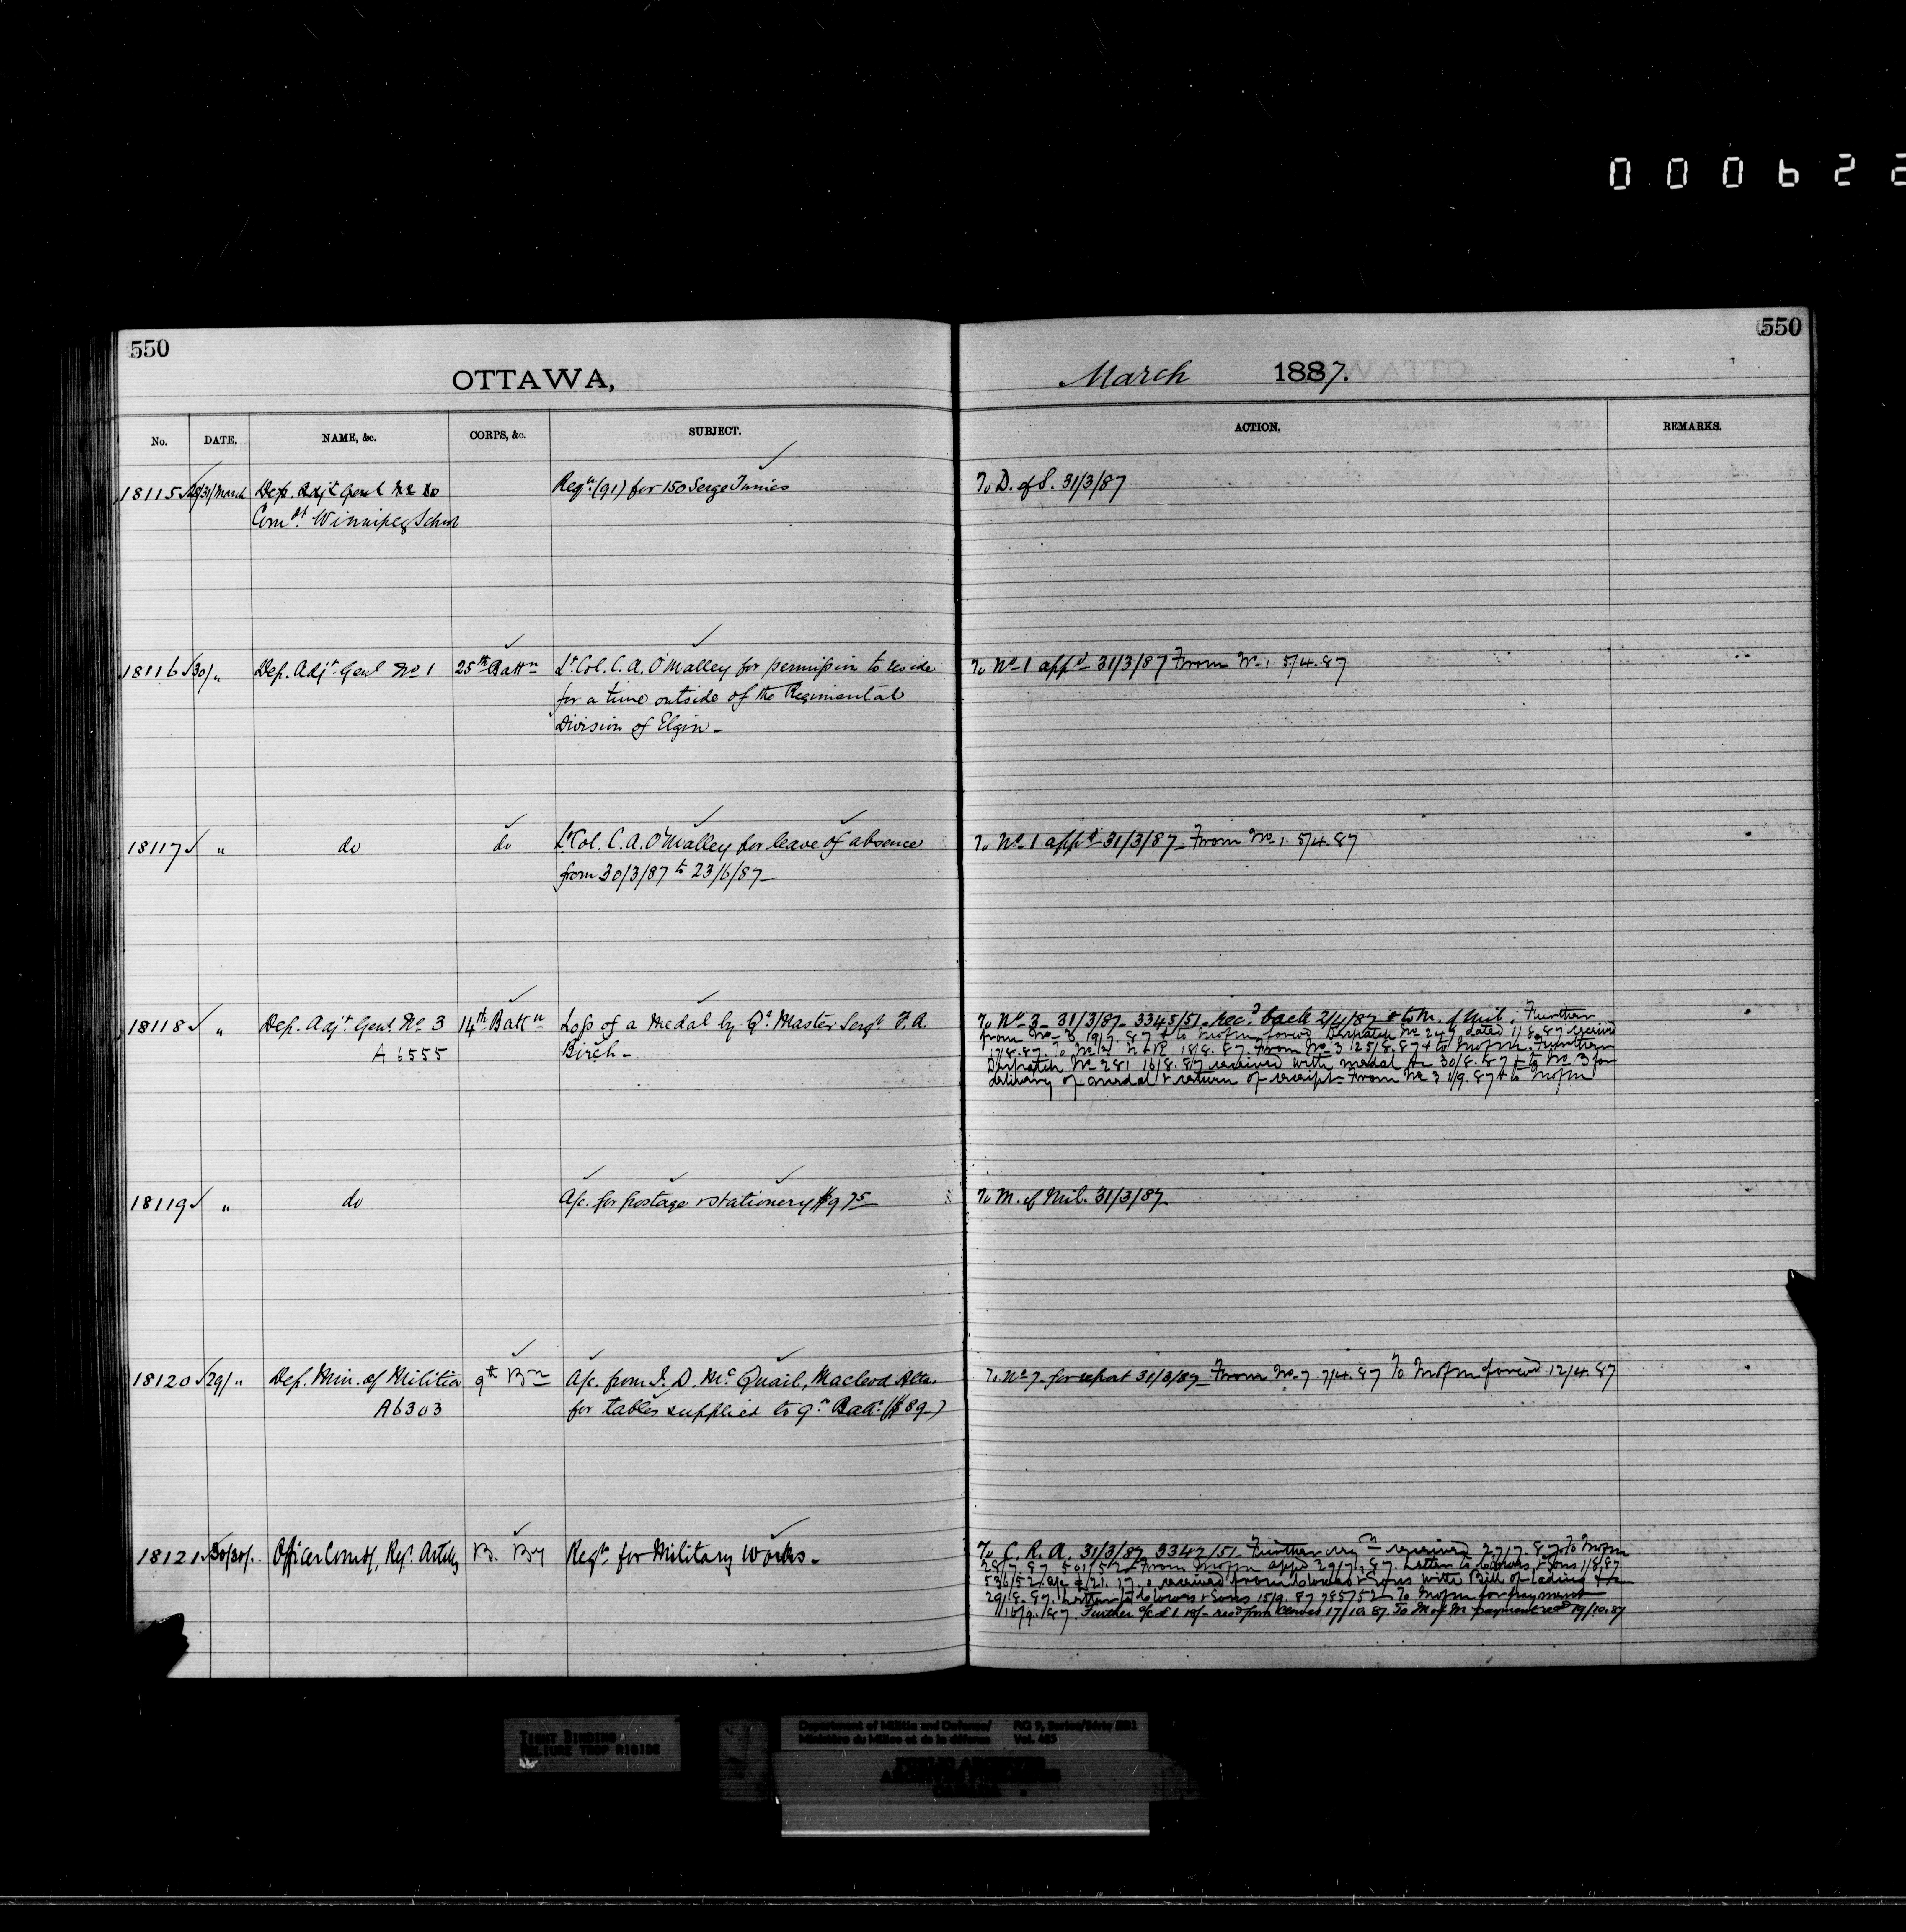 000622
550
550
OTTAWA,
March 1887.
No. DATE. NAME, &c. CORPS, &c. SUBJECT. ACTION. REMARKS.
18115 31/March Dep. Adjt Genl No 10 Reqn (91) for 150 Serge Tunics To D. of S. 31/3/87
Comdt Winnipeg School
18116 30/ " Dep. Adjt Genl No 1 25th Battn Lt Col. C. A. O'Malley for permission to reside To No 1 appd 31/3/87 From No 1 5/4.87
for a time outside of the Regimental
Division of Elgin -
18117 " do do Lt Col. C. A. O'Malley for leave of absence To No 1 appd 31/3/87 - From No 1. 5/4.87
from 30/3/87 to 23/6/87 -
18118 " Dep. Adjt Genl No 3 14th Battn Loss of a Medal by Qr Master Sergt F. A. To No 3 - 31/3/87 - 3345/51 - Recd back 2/4/87 & to M. of Mil. Further
A 6555 Birch -
from No 3 19/7.87 & to MofM forwd Despatch No 249 dated 1/8.87 received
17/8.87. To No 3 18/8.87. From No 3 25/8.87 & to MofM. Further
Despatch No 281 16/8.87 received with medal 30/8.87 & to No 3 for
delivery of medal & return of receipt - From No 3 1/9.87 & to MofM
18119 " do A/c. for postage & stationery $9 75 To M. of Mil. 31/3/87
18120 29/ " Dep. Min. of Militia 9th Bn A/c. from J. D. McQuail, Macleod Alta. To No 7 - for report 31/3/87 - From No 7 7/4.87 To MofM forwd 12/4.87
A6303 for tables supplied to 9th Batt. ($89 -)
18121 30/30/. Officer Comdg, Regt. Artilly B. By Reqn for Military Works - To C. R. A. 31/3/87 3347/51 - Further reqn received 27/7.87 To MofM
28/7.87 501/52 From MofM appd 29/7.87 Letter to Clowes & Sons 1/8.87
536/52 A/c received from Clowes & Sons with Bill of lading
29/8.87. Letter to Clowes & Sons 15/9.87 785/52 - To MofM for payment
16/9/87. Further a/c £1 recd from Clowes 17/10.87 To M of M payment 19/10.87
TIGHT BINDING
RELIURE TROP RIGIDE
Department of Militia and Defence/
Ministère du Milice et de la défense
RG 9, Series/Série IIB1
Vol. 405
PUBLIC ARCHIVES
ARCHIVES PUBLIQUES
CANADA